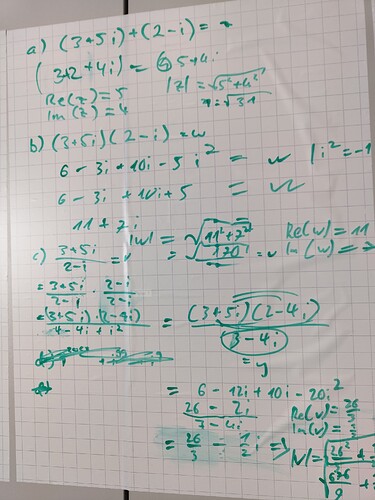 a) (3+5i)+(2-i)= z
(3+2+4i) = 5+4i
Re(z)=5
Im(z)=4
|z|=√5²+4²
=√31
b) (3+5i)(2-i)=w
6-3i+10i-5i² = w |i²=-1
6-3i+10i+5 = w
11+7i
|w|=√11²+7²
=√170
Re(w)=11
Im(w)=7
c) (3+5i)/(2-i)=v
=(3+5i)/(2-i) · (2-i)/(2-i)
=(3+5i)·(2-4i)/(4-4i+i²) = (3+5i)(2-4i)/(3-4i)
=y
= 6-12i+10i-20i²
(26-2i)/(7-4i)
Re(v)=26/3
Im(v)=
= 26/3 - 1/2 i =>
|v|=√26²
√676/9